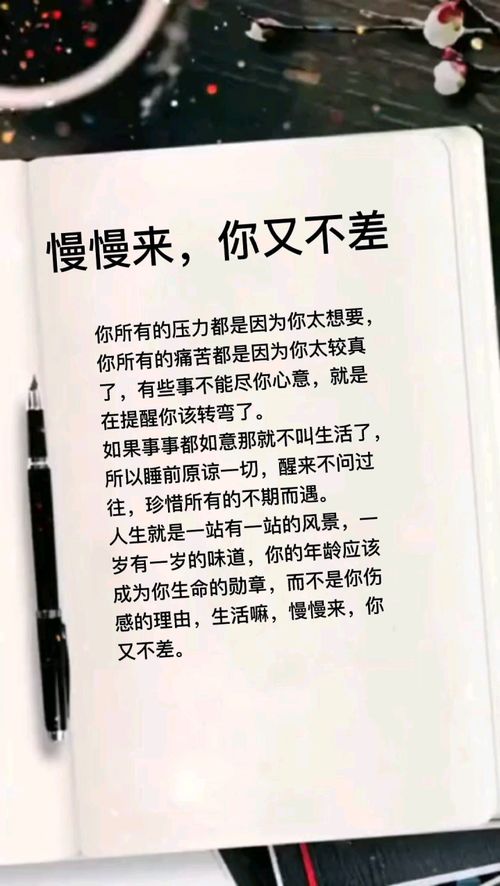 慢慢来，你又不差
你所有的压力都是因为你太想要，
你所有的痛苦都是因为你太较真
了，有些事不能尽你心意，就是
在提醒你该转弯了。
如果事事都如意那就不叫生活了，
所以睡前原谅一切，醒来不问过
往，珍惜所有的不期而遇。
人生就是一站有一站的风景，一
岁有一岁的味道，你的年龄应该
成为你生命的勋章，而不是你伤
感的理由，生活嘛，慢慢来，你
又不差。